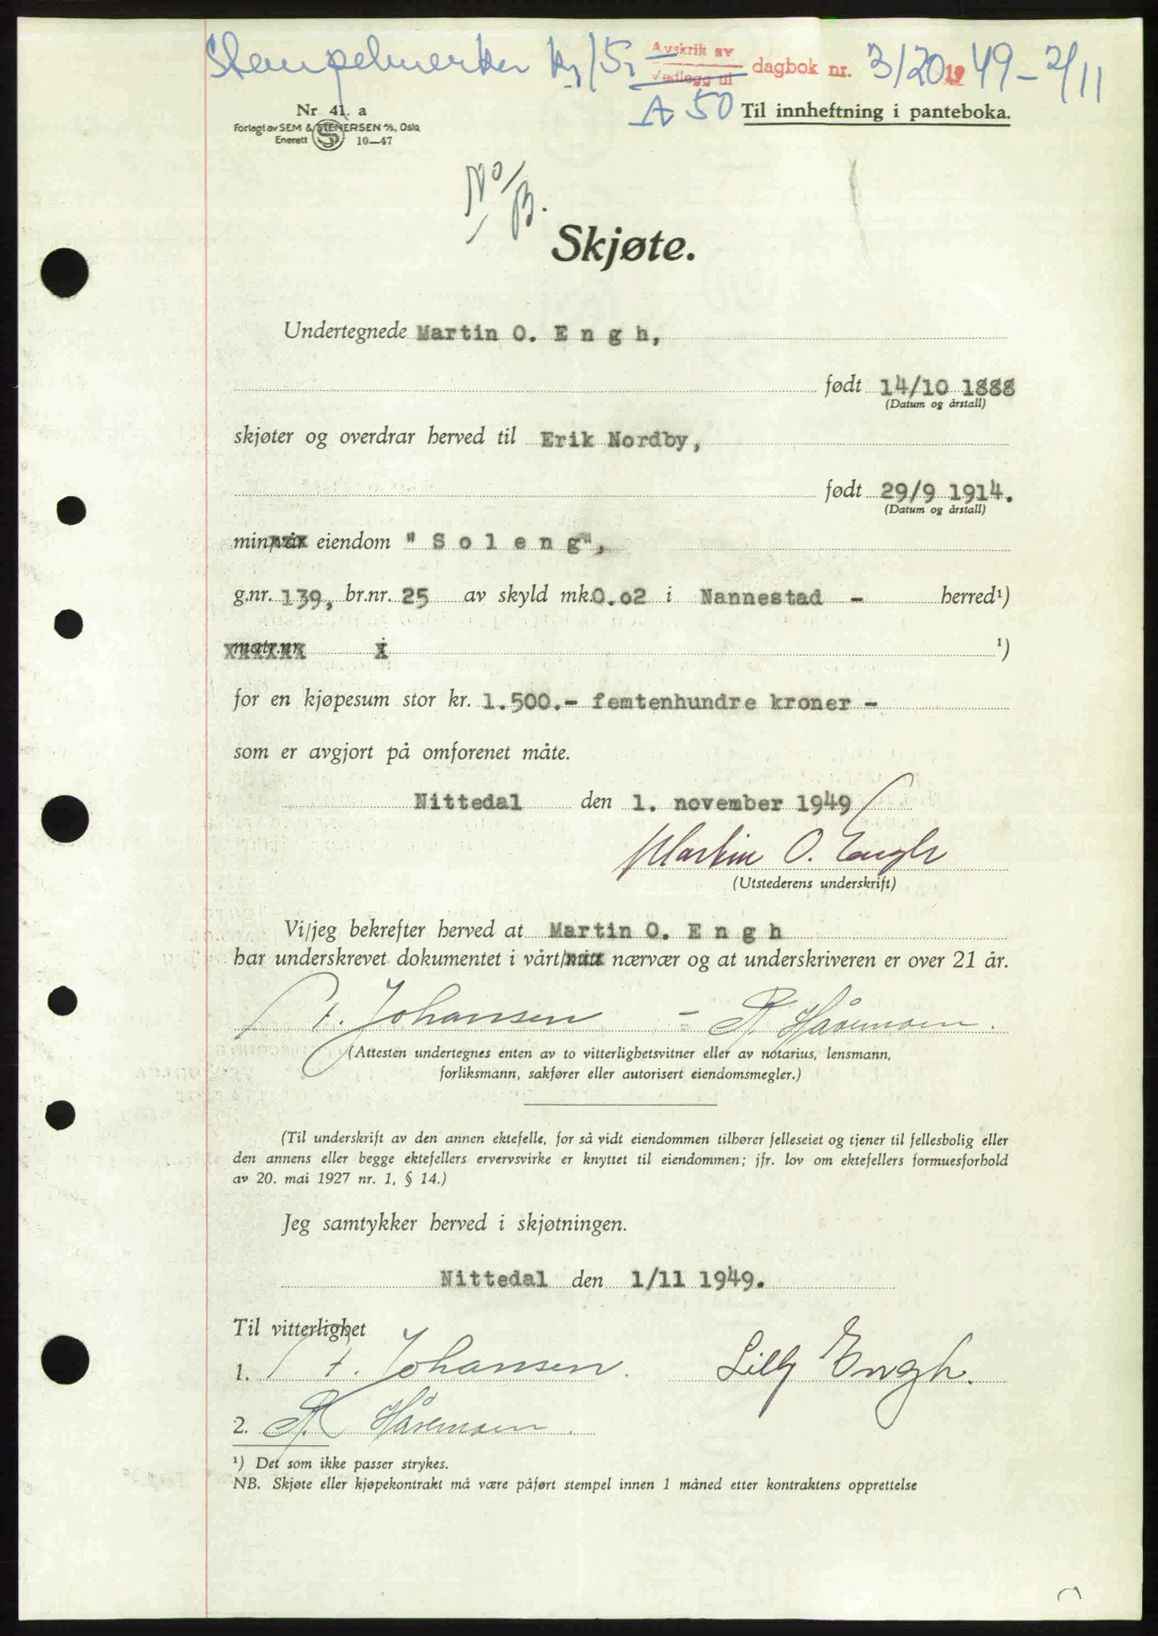 Stempelmerker kr 15,- Avskrift av dagbok nr. 3120 1949 - 2/11
Vedlegg til
A 50 Til innheftning i panteboka.
Nr. 41. a
Forlagt av SEM & STENERSEN A/S, Oslo
Enerett S 10—47
No/B.
Skjøte.
Undertegnede Martin O. E n g h,
født 14/10 1888
(Datum og årstall)
skjøter og overdrar herved til Erik Nordby,
født 29/9 1914.
(Datum og årstall)
min/vår eiendom " S o l e n g",
g.nr. 139, br.nr. 25 av skyld mk. 0.02 i Nannestad - herred¹)
matr.nr. i ¹)
for en kjøpesum stor kr. 1.500.- femtenhundre kroner -
som er avgjort på omforenet måte.
Nittedal den 1. november 1949
Martin O. Engh
(Utstederens underskrift)
Vi/jeg bekrefter herved at Martin O. E n g h
har underskrevet dokumentet i vårt/mitt nærvær og at underskriveren er over 21 år.
Johansen - Håremoen.
(Attesten undertegnes enten av to vitterlighetsvitner eller av notarius, lensmann,
forliksmann, sakfører eller autorisert eiendomsmegler.)
(Til underskrift av den annen ektefelle, for så vidt eiendommen tilhører felleseiet og tjener til fellesbolig eller
den annens eller begge ektefellers ervervsvirke er knyttet til eiendommen; jfr. lov om ektefellers formuesforhold
av 20. mai 1927 nr. 1, § 14.)
Jeg samtykker herved i skjøtningen.
Nittedal den 1/11 1949.
Til vitterlighet
1. Johansen. Lilly Engh.
2. Håremoen.
¹) Det som ikke passer strykes.
NB. Skjøte eller kjøpekontrakt må være påført stempel innen 1 måned etter kontraktens opprettelse